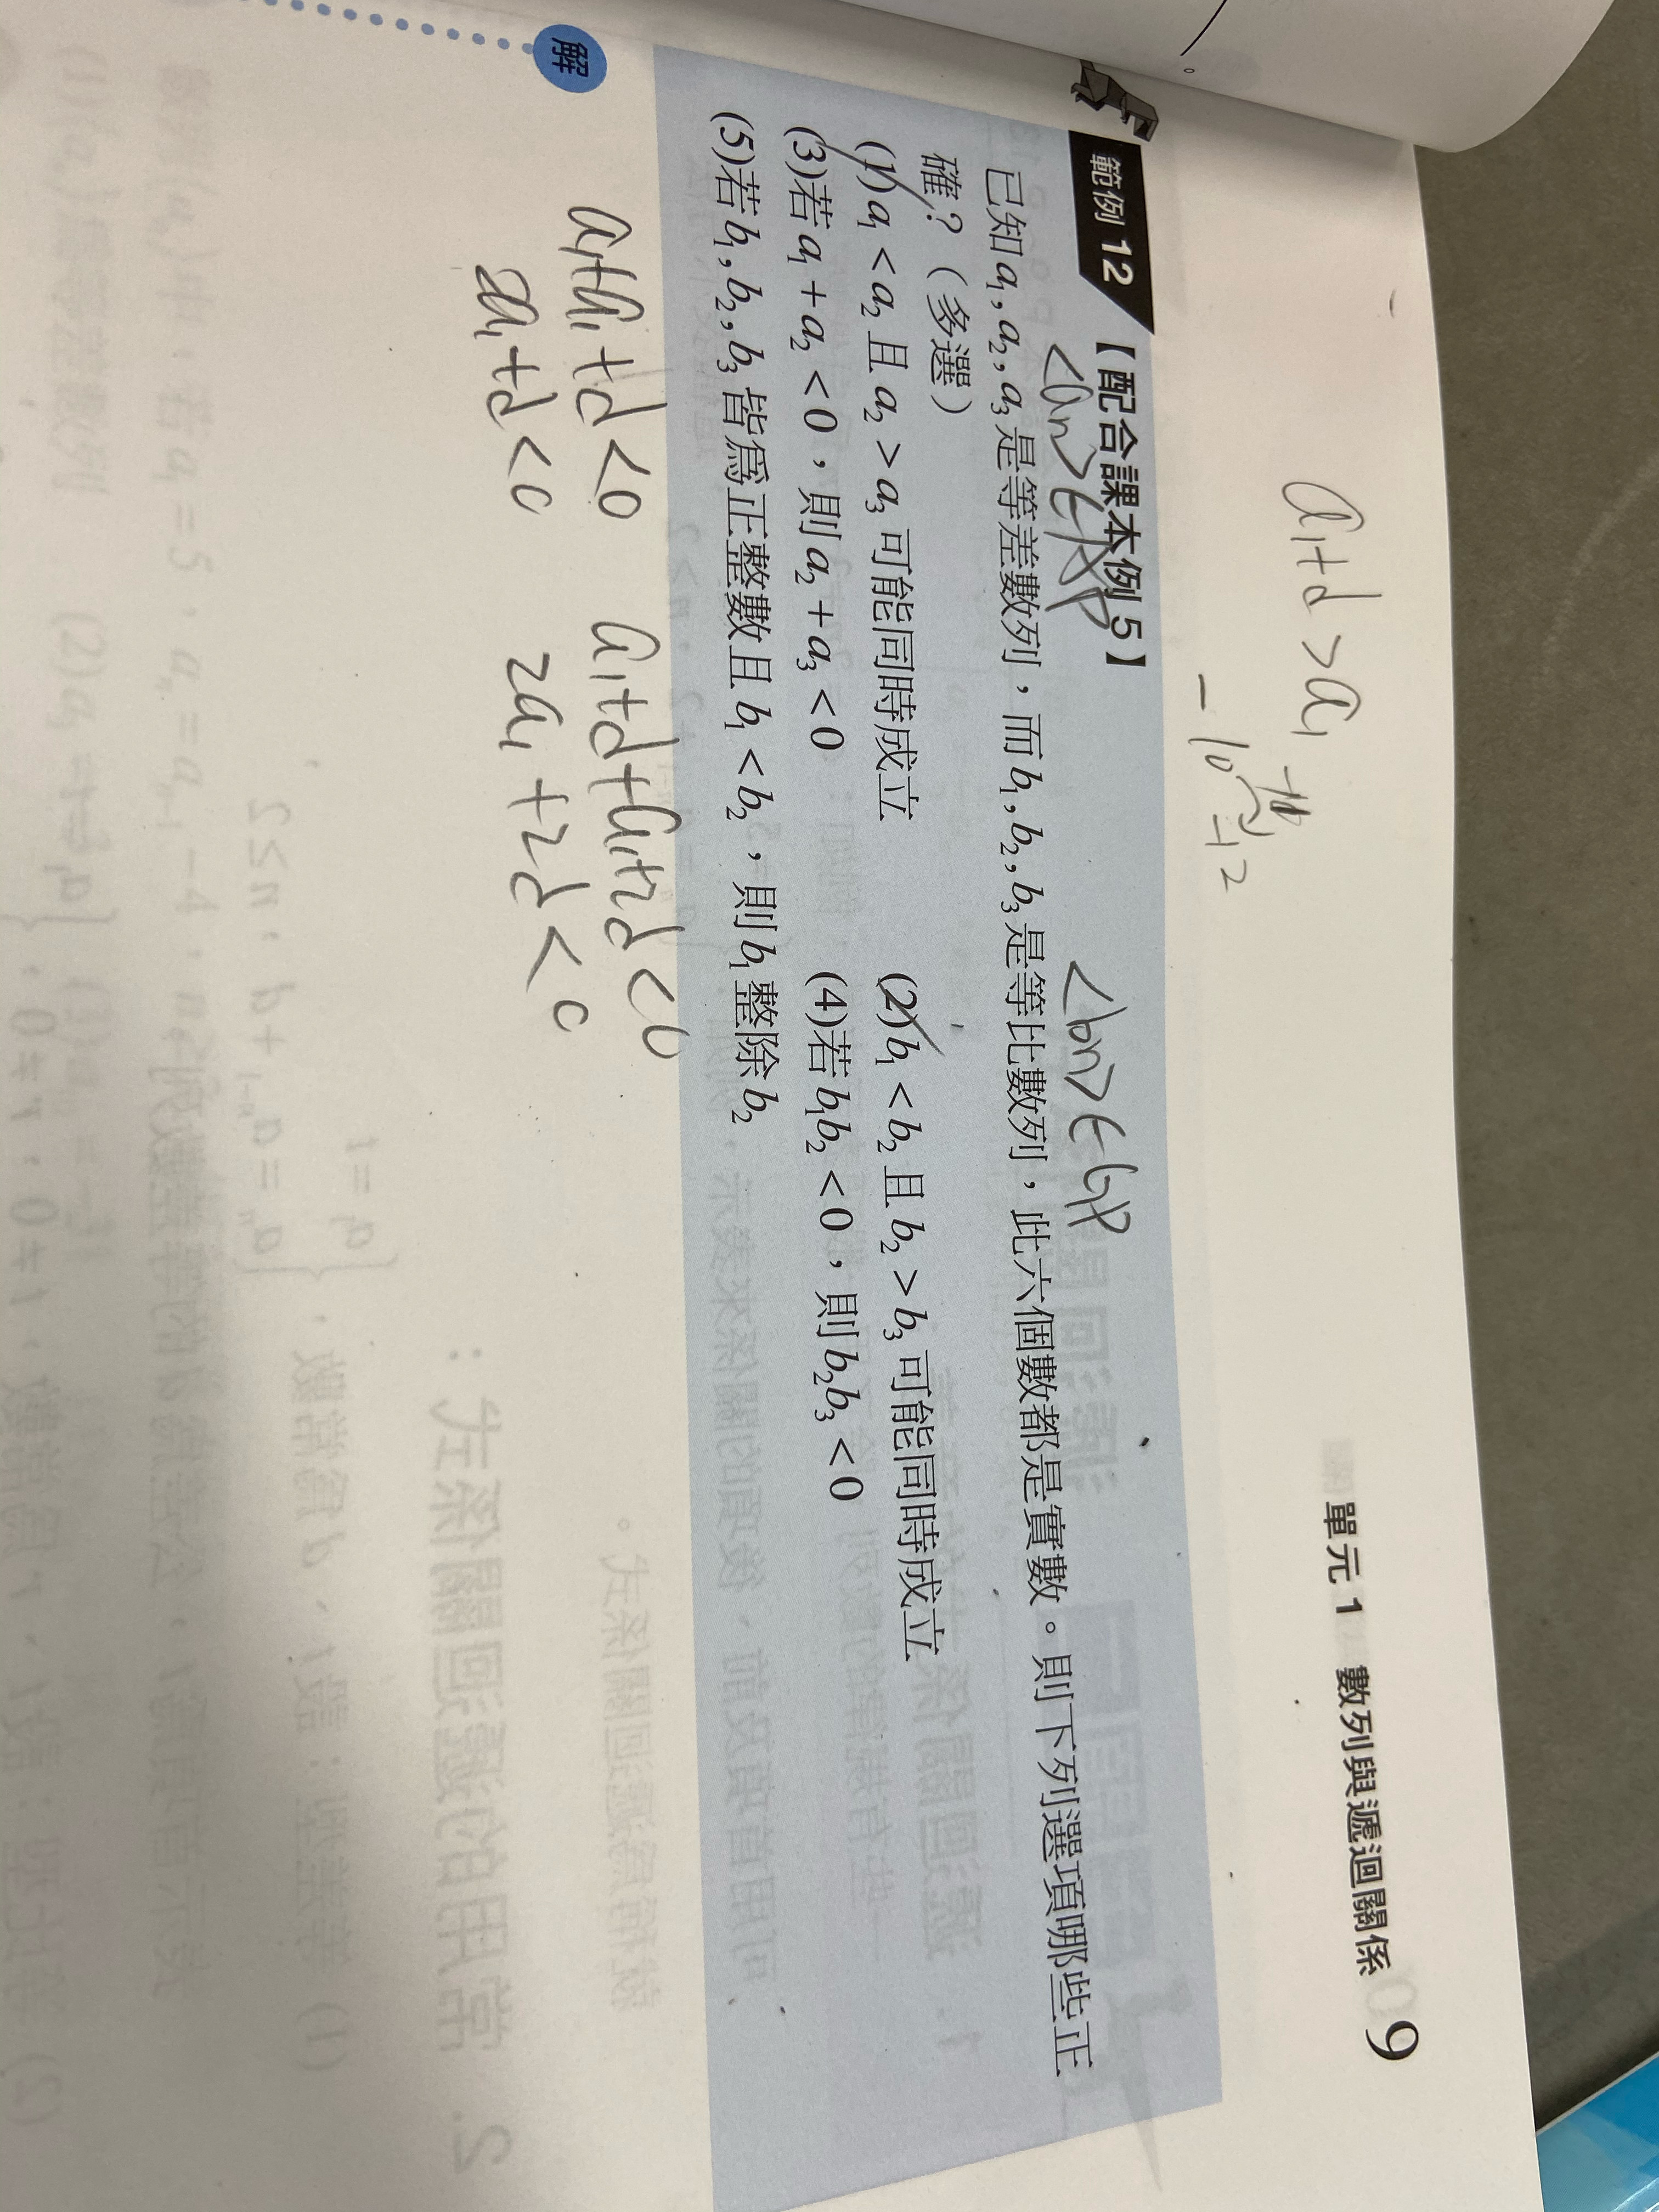 單元 1 數列與遞迴關係 9
a₁+d>a₁
範例 12 【配合課本例 5】
<an>∈AP <bn>∈GP
已知 a₁, a₂, a₃ 是等差數列，而 b₁, b₂, b₃ 是等比數列，此六個數都是實數。則下列選項哪些正
確？（多選）
(1) a₁ < a₂ 且 a₂ > a₃ 可能同時成立 (2) b₁ < b₂ 且 b₂ > b₃ 可能同時成立
(3) 若 a₁ + a₂ < 0，則 a₂ + a₃ < 0 (4) 若 b₁b₂ < 0，則 b₂b₃ < 0
(5) 若 b₁, b₂, b₃ 皆為正整數且 b₁ < b₂，則 b₁ 整除 b₂
解
a₁+a₁+d<0 a₁+d+a₁+2d<0
2a₁+d<0 2a₁+2d<0